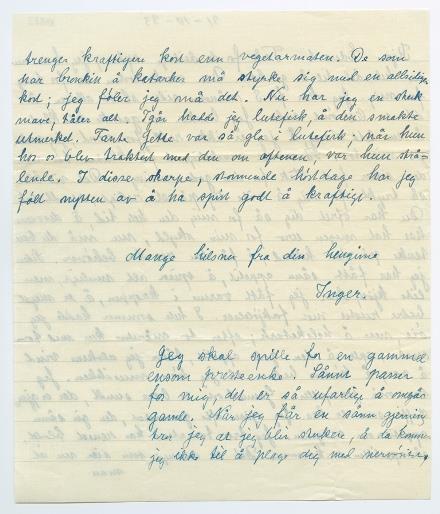 91-10-93
trenger kraftigere kost enn vegetarmaten. De som
har bronkit å katarker må styrke sig med en allsidig
kost; jeg føler jeg må det. Nu har jeg en sterk
mave, tåler alt. Igår hadde jeg lutefisk, å den smakte
utmerket. Tante Jette var så gla i lutefisk; når hun
hos os blev traktert med den om aftenen, var hun strå-
lende. I disse skarpe, stormende høstdage har jeg
følt nytten av å ha spist godt å kraftigt.
Mange hilsner fra din hengivne
Inger.
Jeg skal spille for en gammel
ensom presteenke. Sånnt passer
for mig, det er så ufarlig å omgås
gamle. Når jeg får en sånn gjerning
tror jeg at jeg blir sterkere, å da kommer
jeg ikke til å plage dig med nervøsitet,